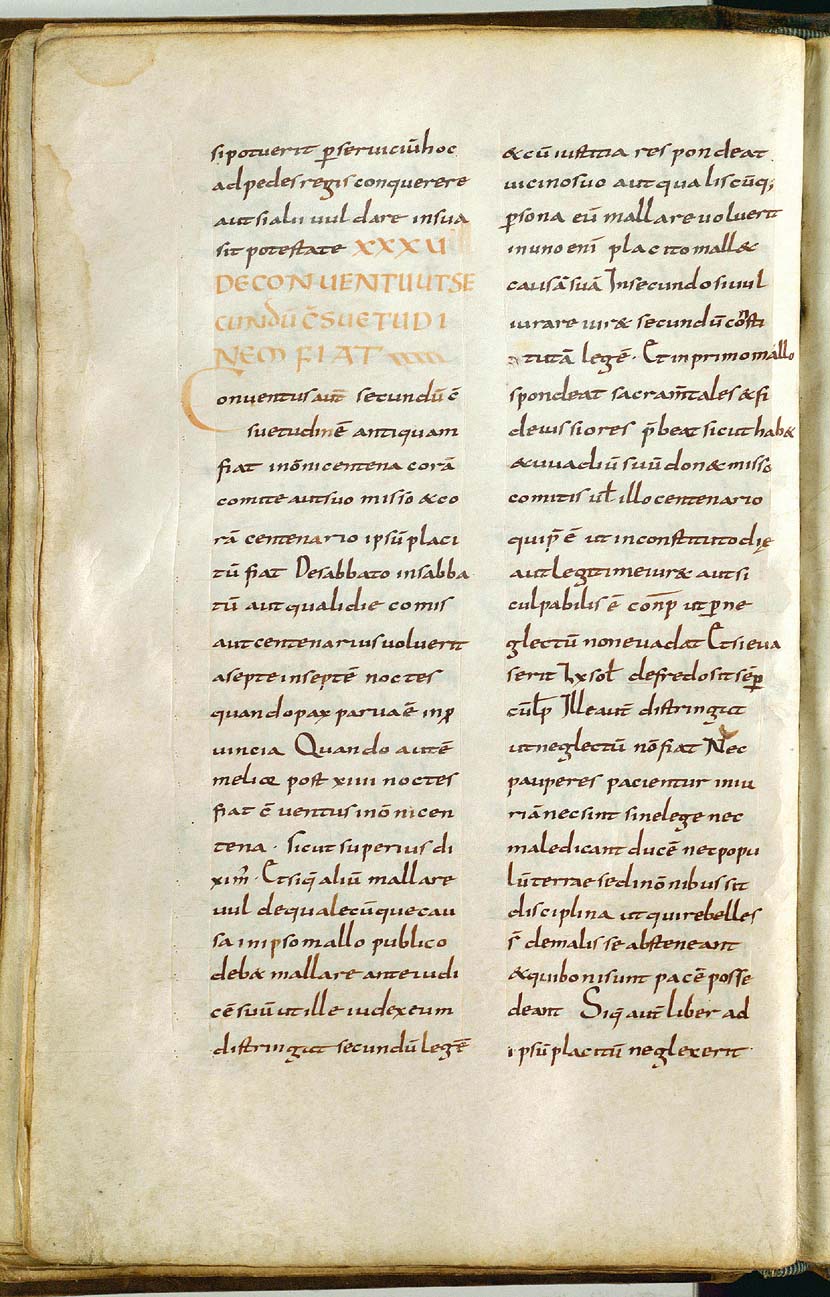 si potuerit p̲ serviciū hoc
ad pedes regis conquerere
aut si alii vul dare in sua
sit potestate XXXVI
DE CONVENTU UT SE
CUNDŪ C̄SUETUDI
NEM FIAT
Conventus aut̄ secundū c̄
suetudinē antiquam
fiat in om̄i centena corā
comite aut suo misso & co
rā centenario ipsū placi
tū fiat De sabbato in sabba
tū aut quali die comis
aut centenarius voluerit
a septe in septē noctes
quando pax parva ē in p̲
vincia Quando autē
melior post xiiii noctes
fiat c̄ventus in om̄i cen
tena · Sicut superius di
xim̄ · Et siq̄ aliū mallare
vul de qualecūque cau
sa in ipso mallo publico
deb& mallare ante iudi
cē suū ut ille iudex eum
distringat secundū legē
& cū iustitia res pondeat
vicino suo aut qualiscūq;
p̲sona eū mallare voluerit
in uno enī placito mall&
causā suā In secundo si vul
iurare iur& secundū cōsti
tutā legē · Et in primo mallo
spondeat sacram̄tales & fi
deiussiores p̄beat sicut hab&
& wadiū suū don& misso
comitis vl̄ illo centenario
qui p̄ ē ut in constituto die
aut legitime iur& aut si
culpabilis ē conp̄ ut p̲ ne
glectū non evadat Et si eva
serit lx sol̄ de fredo sit sēp̲
cūlp̄ Ille aut̄ distringat
ut neglectū nō fiat Nec
pauperes pacientur iniu
riā nec sint sine lege nec
maledicant ducē nec popu
lū terrae sed in om̄ibus sit
disciplina ut qui rebelles
s̄ de malis se absteneant
& qui boni sunt pacē posse
deant Siq̄ aut̄ liber ad
ipsū placitū neglexerit